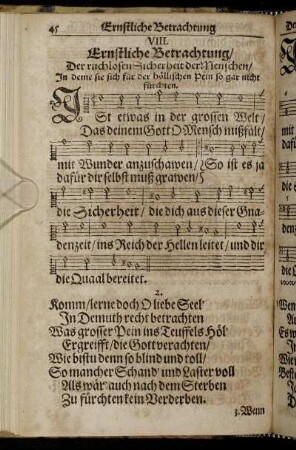 45 Ernstliche Betrachtung
VIII.
Ernstliche Betrachtung/
Der ruchlosen Sicherheit der Menschen/
In deme sie sich für der höllischen Pein so gar nicht
fürchten.
ISt etwas in der grossen Welt/
Das deinem Gott O Mensch mißfält/
mit Wunder anzuschawen/ So ist es ja
dafür dir selbst muß grawen/
die Sicherheit/ die dich aus dieser Gna-
denzeit/ ins Reich der Hellen leitet/ und dir
die Quaal bereitet.
2.
Komm/ lerne doch O liebe Seel'
In Demuth recht betrachten
Was grosser Pein ins Teuffels Höl'
Ergreifft/ die Gott verachten/
Wie bistu denn so blind und toll/
So mancher Schand' und Laster voll
Als wär' auch nach dem Sterben
Zu fürchten kein Verderben.
3. Wenn